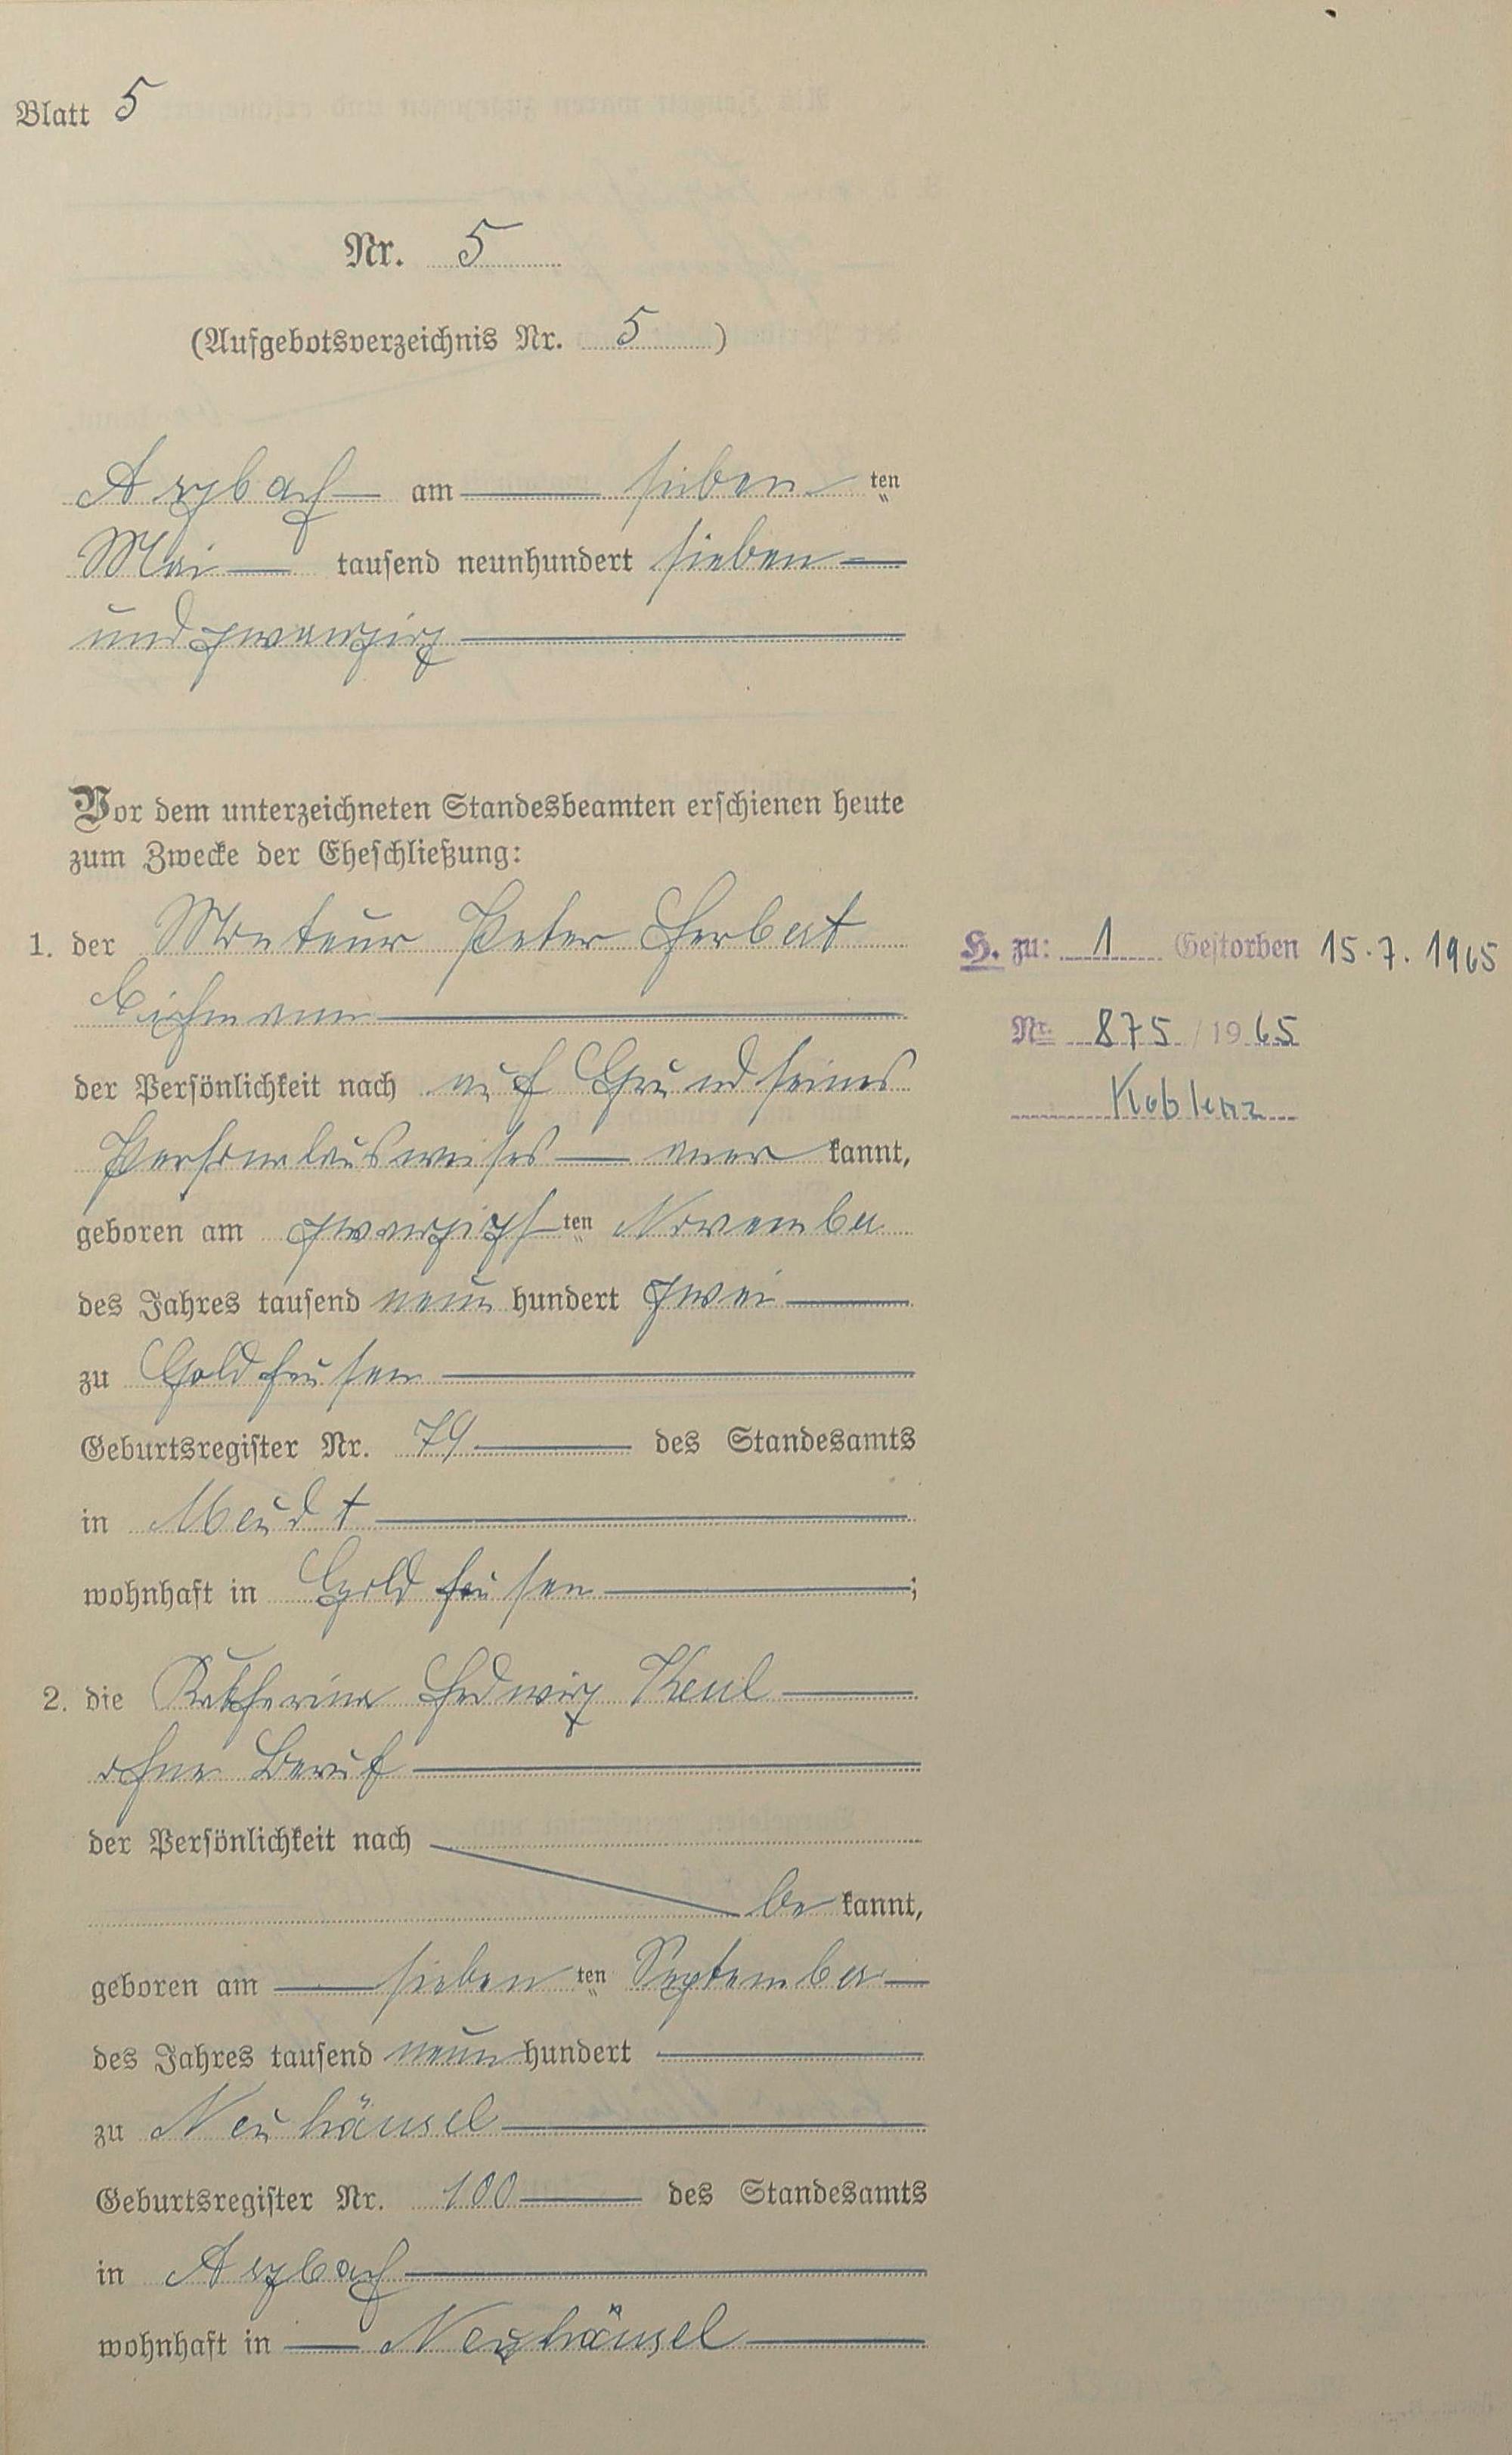 Blatt 5
Nr. 5
(Aufgebotsverzeichnis Nr. 5)
Arzbach am sieben ten
Mai tausend neunhundert sieben
und zwanzig
Vor dem unterzeichneten Standesbeamten erschienen heute
zum Zwecke der Eheschließung:
1. der Monteur Peter Herbert
der Persönlichkeit nach auf Grund seines
Personalausweises aner kannt,
geboren am zwanzigs ten November
des Jahres tausend neun hundert zwei
zu Goldhausen
Geburtsregister Nr. 79 des Standesamts
in Meudt
wohnhaft in Goldhausen;
H. zu: 1 Gestorben 15.7.1965
Nr. 875/1965
Koblenz
2. die Katharina Hedwig Keul
ohne Beruf
der Persönlichkeit nach
be kannt,
geboren am sieben ten September
des Jahres tausend neun hundert
zu Neuhäusel
Geburtsregister Nr. 100 des Standesamts
in Arzbach
wohnhaft in Neuhäusel